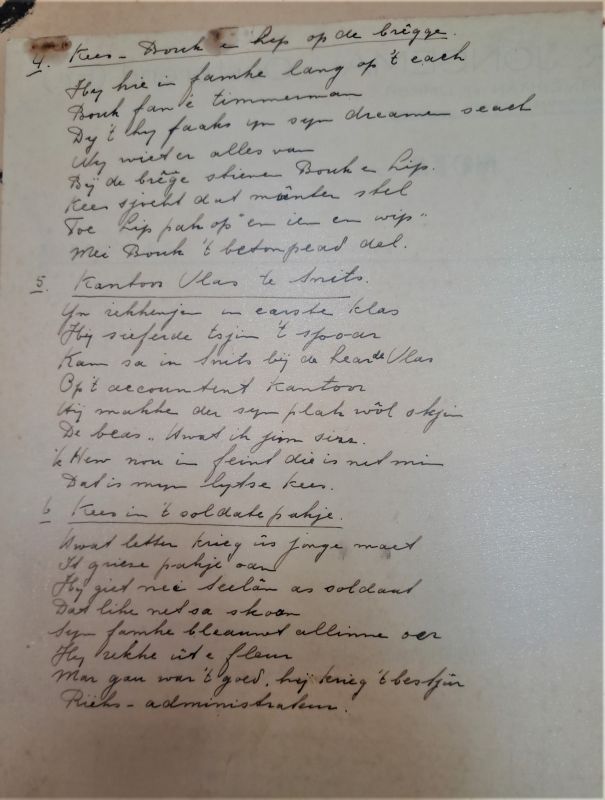 4. Kees - Bouk en hep op de brêgge.
Hy hie in famke lang op 't each
Bouk fan e timmerman
Dy 't hy faaks yn syn dreamen seach
Wy wiet er alles van
Bij de brêge stienen Bouk en hip.
Kees sjocht dat mânter stel
Toe "hip pak op" en ien en wip"
Mei Bouk 't betonpead del.
5. Kantoor Vlas te Snits.
Yn rekkenjen in earste klas
Hij sieferde tsjin 't spoar
Kam sa in Snits bij de hear de Vlas
Op 't accountent kantoor
Hij makke der syn plak wôl skjin
De beas.. Uwat ik jim sizz.
'k Hew nou in feint die is net min
Dat is myn lytse Kees.
6 Kees in 't soldate pakje.
Uwat letter krieg ús jonge maet
It grieze pakje oan
Hij giet nei Seelân as soldaat
Dat like net sa skoan
Syn famke bleaunet allinne oer
Hy rekke út e fleur
Mar gau war 't goed, hij krieg 't bestjûr
Riëks-administrateur.